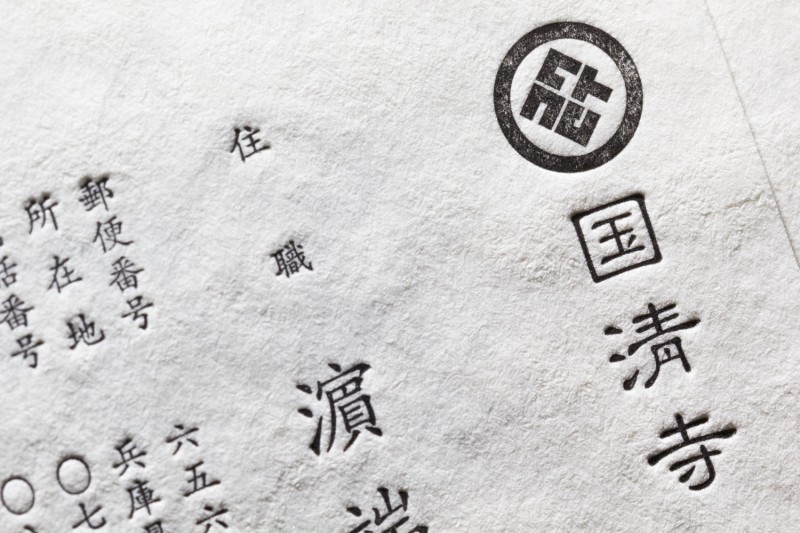 国清寺
住職 濱端
郵便番号 六五六
所在地 兵庫県
話番号 〇七
〇